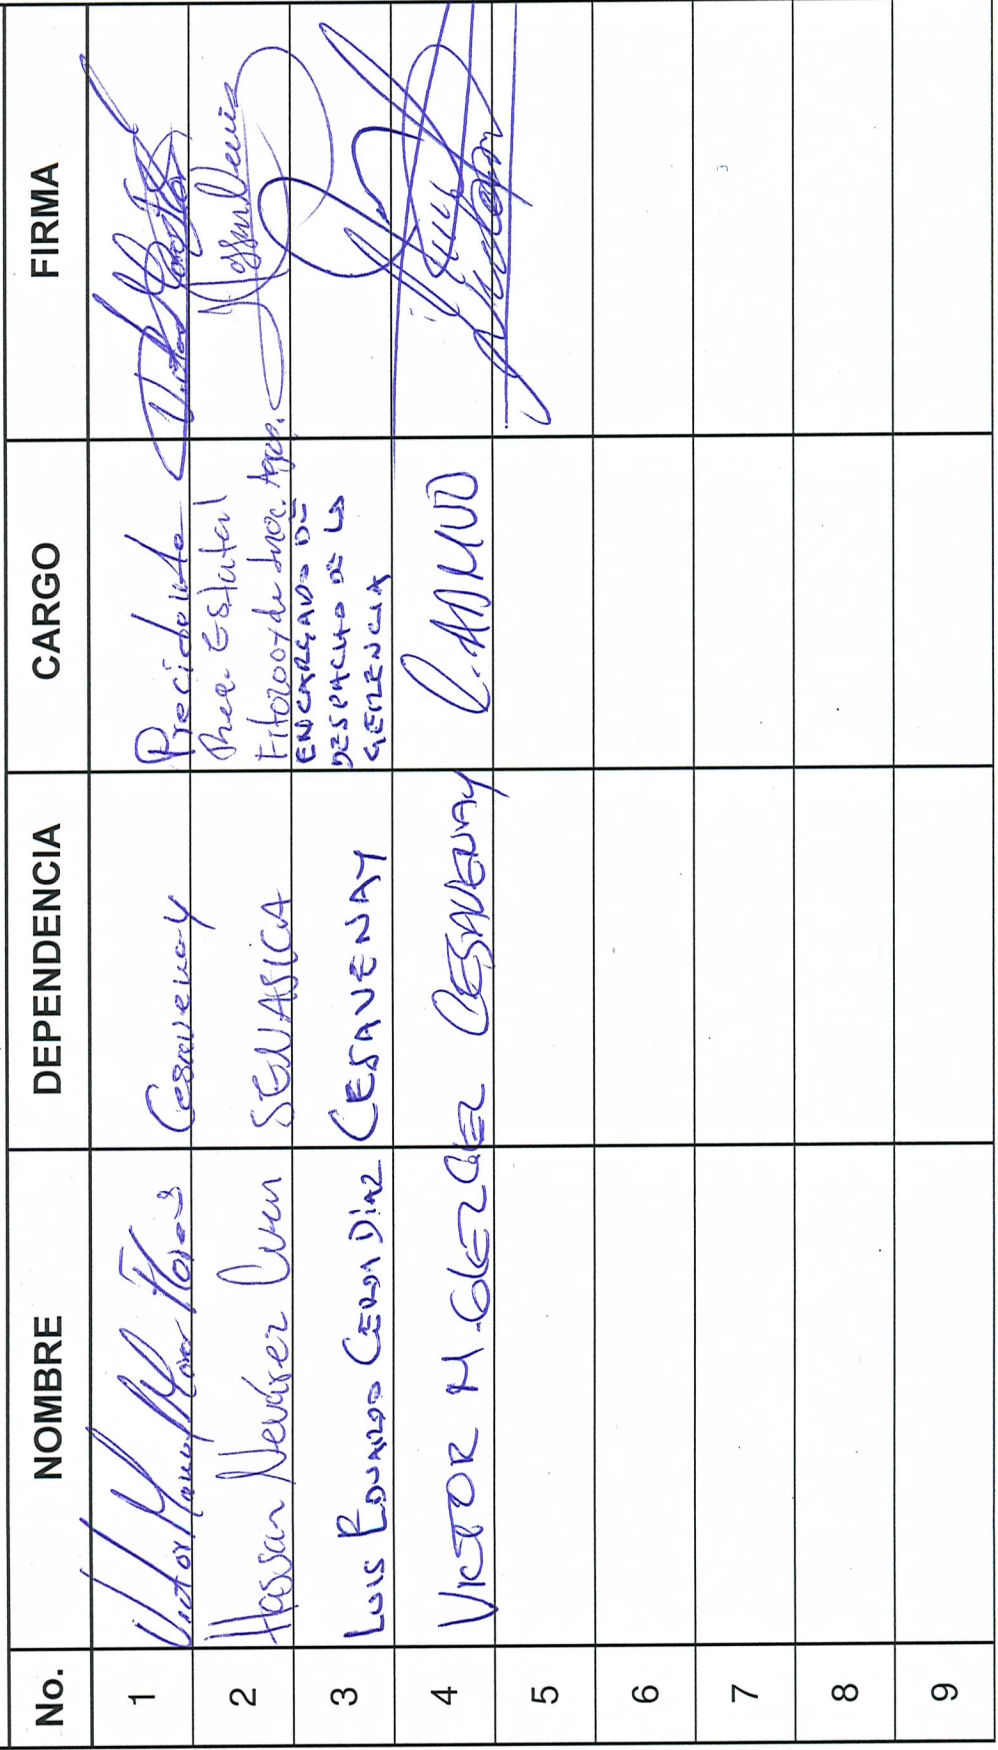 No. NOMBRE DEPENDENCIA CARGO FIRMA
1 Victor Manuel Mora Flores Cesavenay Precidente
2 Hassan Nevárez Cuen SENASICA Estatal
Fitozoo y de Inoc. Agro.
3 LUIS EDUARDO CERDA DÍAZ CESAVENAY ENCARGADO DE
DESPACHO DE LA
GERENCIA
4 VICTOR M. CESAVENAY C. ADMVO
5
6
7
8
9